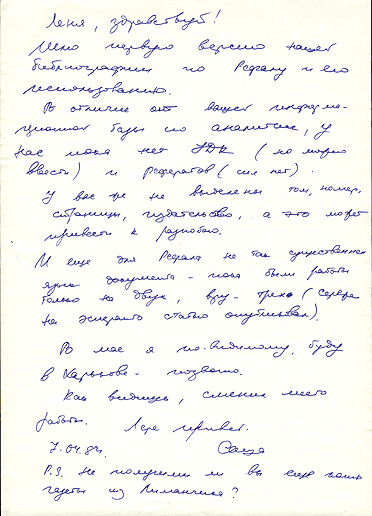 Леня, здравствуй!
Шлю первую версию нашей
библиографии по Рефалу и его
использованию.
В отличие от вашей информа-
ционной базы по аналитич., у
нас пока нет УДК (но можно
ввести) и рефератов (сил нет).
У вас же не выделены том, номер,
страницы, издательство, а это может
привести к разнобою.
И еще для Рефала не так существенен
язык документа - пока были работы
только на двух, вру - трех (Сережа
на эсперанто статью опубликовал).
В мае я по-видимому буду
в Харькове - позвоню.
Как видишь, сменил место
работы. Лере привет.
7.04.84. Саша
P.S. Не получили ли вы еще наши
газеты из Лиманчика?